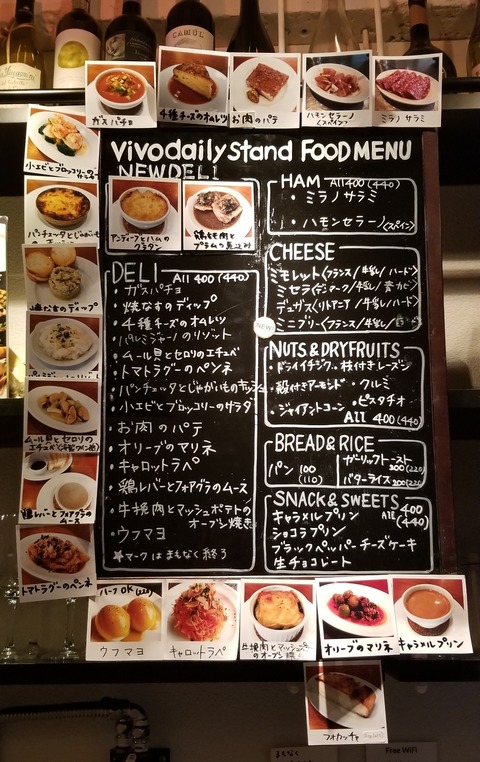 CAMUL
ガスパチョ
4種チーズのオムレツ
お肉のパテ
ハモンセラーノ
(スペイン)
ミラノサラミ
小エビとブロッコリーの
サラダ
パンチェッタとじゃがいも
焼なすのディップ
ムール貝とセロリの
エチュベ
鶏レバーとフォアグラの
ムース
トマトラグーのペンネ
Vivodaily Stand FOOD MENU
NEW DELI
アンディーブとハムの
グラタン
鶏もも肉と
プラムの煮込み
DELI All 400 (440)
・ガスパチョ
・焼なすのディップ
・4種チーズのオムレツ
・パルミジャーノのリゾット
・ムール貝とセロリのエチュベ
・トマトラグーのペンネ
・パンチェッタとじゃがいもの
・小エビとブロッコリーのサラダ
・お肉のパテ
・オリーブのマリネ
・キャロットラペ
・鶏レバーとフォアグラのムース
・牛挽肉とマッシュポテトの
オーブン焼き
・ウフマヨ
★マークはまもなく終了
HAM All 400 (440)
・ミラノサラミ
・ハモンセラーノ(スペイン)
CHEESE
ミモレット(フランス/牛乳/ハード)
ミセラ(デンマーク/牛乳/青カビ)
デュガス(リトアニア/牛乳/ハード)
ミニブリー(フランス/牛乳/白カビ)
NEW
NUTS & DRYFRUITS
・ドライイチジク ・枝付きレーズン
・殻付きアーモンド ・クルミ
・ピスタチオ
・ジャイアントコーン All 400 (440)
BREAD & RICE
パン 100
(110)
ガーリックトースト
200 (220)
バターライス 200 (220)
SNACK & SWEETS
キャラメルプリン All 400
(440)
ショコラプリン
ブラックペッパーチーズケーキ
生チョコレート
ハーフOK
ウフマヨ
キャロットラペ
牛挽肉とマッシュ
のオーブン焼
オリーブのマリネ
キャラメルプリン
フォカッチャ
まもなく
Free WiFi